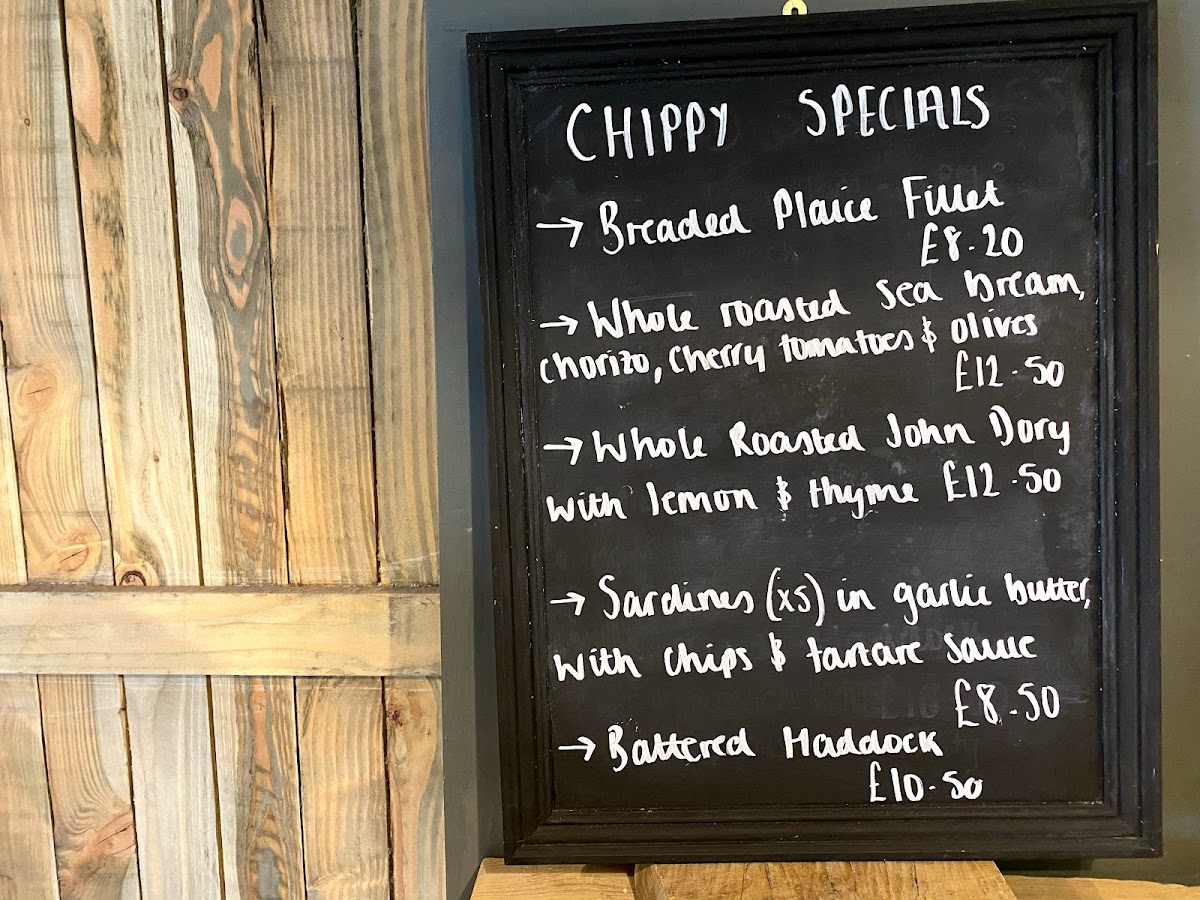 CHIPPY SPECIALS
→ Breaded Plaice Fillet
£8.20
→ Whole roasted Sea bream,
chorizo, cherry tomatoes & olives
£12.50
→ Whole Roasted John Dory
with lemon & thyme £12.50
→ Sardines (x5) in garlic butter,
with chips & tartare sauce
£8.50
→ Battered Haddock
£10.50